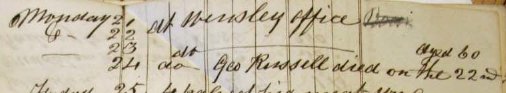 Monday 21 at Wensley office
& 22
23 do
24 do Geo Russell died on the 22nd aged 60
25